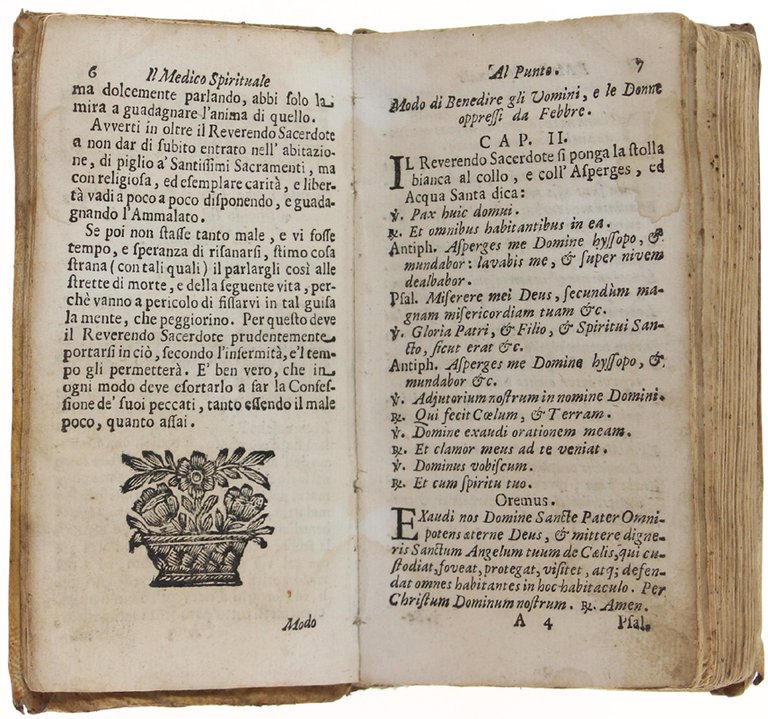 6 Il Medico Spirituale
ma dolcemente parlando, abbi ſolo la
mira a guadagnare l'anima di quello.
Avverti in oltre il Reverendo Sacerdote
a non dar di ſubito entrato nell' abitazio-
ne, di piglio a' Santiſſimi Sacramenti, ma
con religioſa, ed eſemplare carità, e liber-
tà vadi a poco a poco diſponendo, e guada-
gnando l'Ammalato.
Se poi non ſtaſſe tanto male, e vi foſſe
tempo, e ſperanza di riſanarſi, ſtimo coſa
ſtrana (con tali quali) il parlargli così alle
ſtrette di morte, e della ſeguente vita, per-
chè vanno a pericolo di fiſſarvi in tal guiſa
la mente, che peggiorino. Per queſto deve
il Reverendo Sacerdote prudentemente
portarſi in ciò, ſecondo l'infermità, e'l tem-
po gli permetterà. E' ben vero, che in
ogni modo deve eſortarlo a far la Confeſ-
ſione de' ſuoi peccati, tanto eſſendo il male
poco, quanto aſſai.
Modo
Al Punto. 7
Modo di Benedire gli Uomini, e le Donne
oppreſſi da Febbre.
CAP. II.
IL Reverendo Sacerdote ſi ponga la ſtolla
bianca al collo, e coll' Aſperges, ed
Acqua Santa dica:
℣. Pax huic domui.
℟. Et omnibus habitantibus in ea.
Antiph. Aſperges me Domine hyſſopo, &
mundabor: lavabis me, & ſuper nivem
dealbabor.
Pſal. Miſerere mei Deus, ſecundùm ma-
gnam miſericordiam tuam &c.
℣. Gloria Patri, & Filio, & Spiritui San-
cto, ſicut erat &c.
Antiph. Aſperges me Domine hyſſopo, &
mundabor &c.
℣. Adjutorium noſtrum in nomine Domini.
℟. Qui fecit Cœlum, & Terram.
℣. Domine exaudi orationem meam.
℟. Et clamor meus ad te veniat.
℣. Dominus vobiſcum.
℟. Et cum ſpiritu tuo.
Oremus.
EXaudi nos Domine Sancte Pater Omni-
potens æterne Deus, & mittere digne-
ris Sanctum Angelum tuum de Cælis, qui cu-
ſtodiat, foveat, protegat, viſitet, atq; defen-
dat omnes habitantes in hoc habitaculo. Per
Chriſtum Dominum noſtrum. ℟. Amen.
A 4 Pſal.